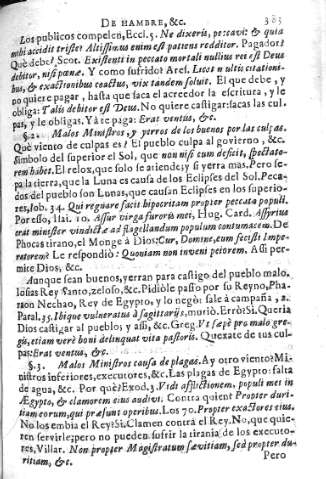 DE HAMBRE, &c. 383
Los publicos compelen, Eccl. 5. Ne dixeris, peccavi: & quid
mihi accidit triste? Altissimus enim est patiens redditor. Pagador?
Què debe? Scot. Existenti in peccato mortali nullius rei est Deus
debitor, nisi pœnæ. Y como sufrido? Arel. Licet n ultis citationi-
bus, & exactionibus coactus, vix tandem soluit. El que debe, y
no quiere pagar, hasta que saca el acreedor la escritura, y le
obliga: Talis debitor est Deus. No quiere castigar: sacas las cul-
pas, y le obligas. Yà te paga: Erat ventus, &c.
§. 2. Malos Ministros, y yerros de los buenos por las culpas.
Què viento de culpas es? El pueblo culpa al govierno, &c.
Simbolo del superior el Sol, que non nisi cum deficit, spectato-
rem habet. El relox, que solo se atiende, y si yerra mas. Pero se-
pa la tierra, que la Luna es causa de los Eclipses del Sol. Peca-
dos del pueblo son Lunas, que causan Eclipses en los superio-
res, Iob. 34. Qui regnare facit hipocritam propter peccata populi.
Por esso, Isai. 10. Assur virga furoris mei, Hug. Card. Assyrius
erat minister vindictæ ad flagellandum populum contumacem. De
Phocas tirano, el Monge à Dios: Cur, Domine, eum fecisti Impe-
ratorem? Le respondiò: Quoniam non inveni peiorem. Assi per-
mite Dios, &c.
Aunque sean buenos, yerran para castigo del pueblo malo.
Iosias Rey santo, zeloso, &c. Pidiòle passo por su Reyno, Pha-
raon Nechao, Rey de Egypto, y lo negò: sale à campaña, 2.
Paral. 35. Ibique vulneratus à sagittarijs, muriò. Errò? Si. Queria
Dios castigar al pueblo, y assi, &c. Greg. Vt sæpè pro malo gre-
gis, etiam verè boni delinquat vita pastoris. Quexate de tus cul-
pas: Erat ventus, &c.
§. 3. Malos Ministros causa de plagas. Ay otro viento? Mi-
nistros inferiores, executores, &c. Las plagas de Egypto: falta
de agua, &c. Por què? Exod. 3. Vidi afflictionem, populi mei in
Ægypto, & clamorem eius audivi. Contra quien? Propter duri-
tiam eorum, qui præsunt operibus. Los 70. Propter exactores eius.
No los embia el Rey? Si. Clamen contra el Rey. No, que quie-
ren servirle; pero no pueden sufrir la tirania de los executo-
res, Villar. Non propter Magistratum sævitiam, sed propter du-
ritiam, &c.
Pero